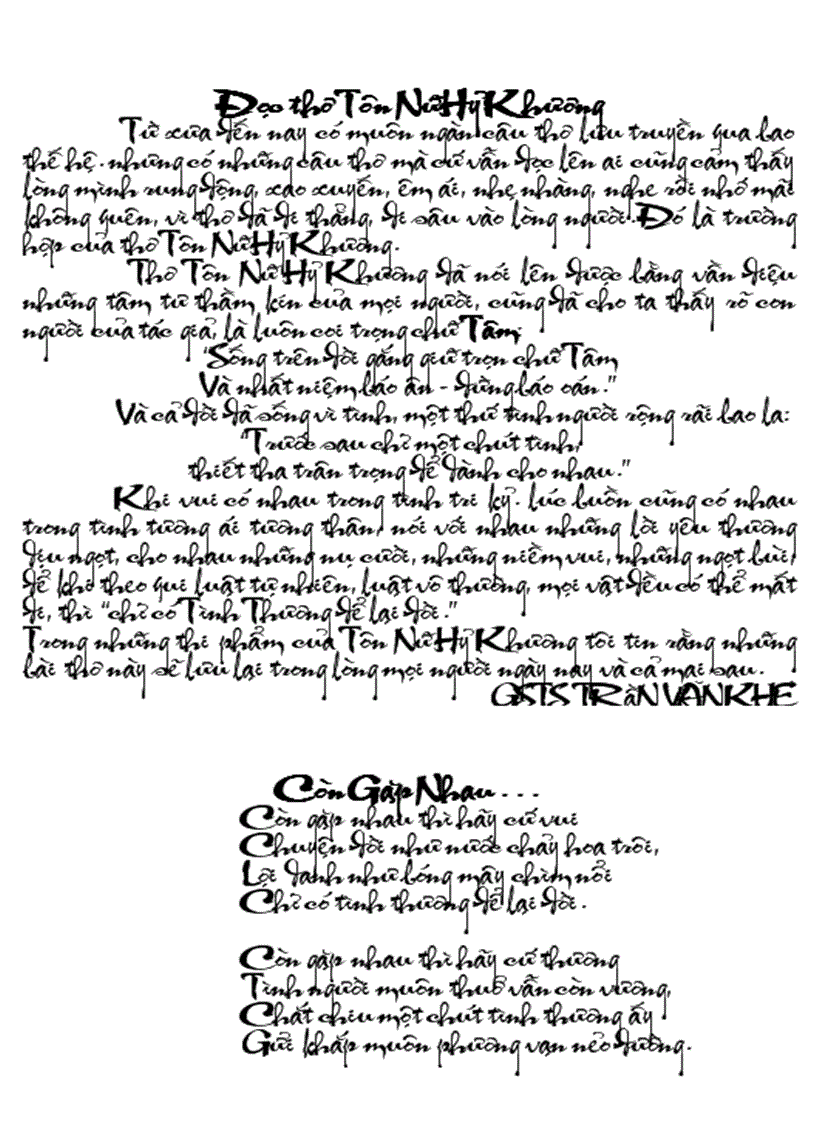 Đọc thơ Tôn Nữ Hỷ Khương
Từ xưa đến nay có muôn ngàn câu thơ lưu truyền qua bao
thế hệ. nhưng có những câu thơ mà cứ vẫn đọc lên ai cũng cảm thấy
lòng mình rung động, xao xuyến, êm ái, nhẹ nhàng, nghe rồi nhớ mãi
không quên, vì thơ đã đi thẳng, đi sâu vào lòng người. Đó là trường
hợp của thơ Tôn Nữ Hỷ Khương.
Thơ Tôn Nữ Hỷ Khương đã nói lên được bằng vần điệu
những tâm tư thầm kín của mọi người, cũng đã cho ta thấy rõ con
người của tác giả, là luôn coi trọng chữ Tâm;
"Sống trên đời gắng giữ trọn chữ Tâm
Và nhất niệm báo ân - đừng báo oán."
Và cả đời đã sống vì tình, một thứ tình người rộng rãi bao la:
"Trước sau chỉ một chút tình,
thiết tha trân trọng để dành cho nhau."
Khi vui có nhau trong tình tri kỷ. lúc buồn cũng có nhau
trong tình tương ái tương thân, nói với nhau những lời yêu thương
dịu ngọt, cho nhau những nụ cười, những niềm vui, những ngọt bùi,
để khi theo qui luật tự nhiên, luật vô thường, mọi vật đều có thể mất
đi, thì "chỉ có Tình Thương để lại đời."
Trong những thi phẩm của Tôn Nữ Hỷ Khương tôi tin rằng những
bài thơ này sẽ lưu lại trong lòng mọi người ngày nay và cả mai sau.
GSTS TRẦN VĂN KHÊ
Còn Gặp Nhau . . .
Còn gặp nhau thì hãy cứ vui
Chuyện đời như nước chảy hoa trôi,
Lợi danh như bóng mây chìm nổi
Chỉ có tình thương để lại đời.
Còn gặp nhau thì hãy cứ thương
Tình người muôn thuở vẫn còn vương,
Chắt chiu một chút tình thương ấy
Gửi khắp muôn phương vạn nẻo đường.